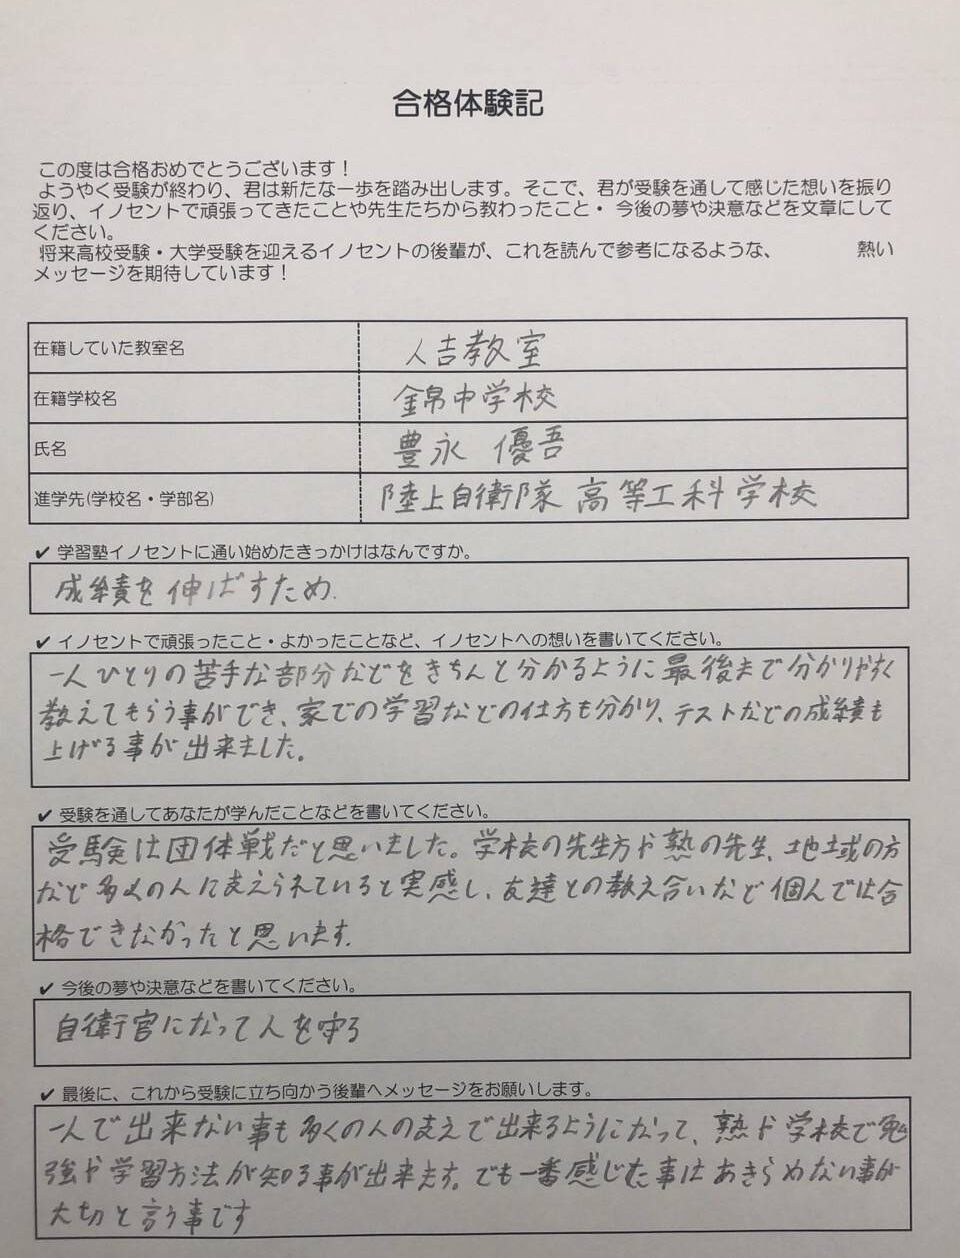 合格体験記
この度は合格おめでとうございます！
ようやく受験が終わり、君は新たな一歩を踏み出します。そこで、君が受験を通して感じた想いを振り
返り、イノセントで頑張ってきたことや先生たちから教わったこと・今後の夢や決意などを文章にして
ください。
将来高校受験・大学受験を迎えるイノセントの後輩が、これを読んで参考になるような、 熱い
メッセージを期待しています！
在籍していた教室名 人吉教室
在籍学校名 錦中学校
氏名 豊永 優吾
進学先(学校名・学部名) 陸上自衛隊 高等工科学校
✔ 学習塾イノセントに通い始めたきっかけはなんですか。
成績を伸ばすため.
✔ イノセントで頑張ったこと・よかったことなど、イノセントへの想いを書いてください。
一人ひとりの苦手な部分などをきちんと分かるように最後まで分かりやすく
教えてもらう事ができ、家での学習などの仕方も分かり、テストなどの成績も
上げる事が出来ました。
✔ 受験を通してあなたが学んだことなどを書いてください。
受験は団体戦だと思いました。学校の先生方や熟の先生、地域の方
など多くの人に支えられていると実感し、友達との教え合いなど個人では合
格できなかったと思います.
✔ 今後の夢や決意などを書いてください。
自衛官になって人を守る
✔ 最後に、これから受験に立ち向かう後輩へメッセージをお願いします。
一人で出来ない事も多くの人の支えで出来るようになって、熟や学校で勉
強や学習方法が知る事が出来ます。でも一番感じた事はあきらめない事が
大切と言う事です